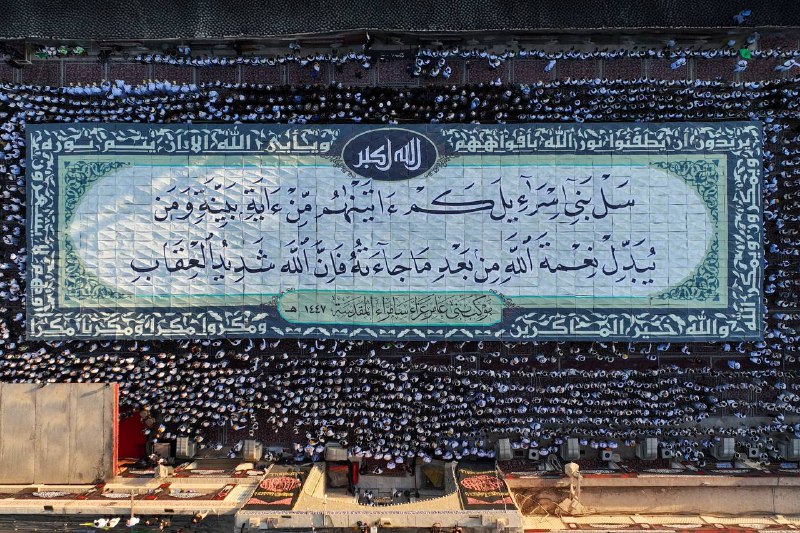 يريدون أن يطفئوا نور الله بأفواههم ويأبى الله إلا أن يتم نوره
الله أكبر
سَلْ بَنِىٓ إِسْرَٰٓءِيلَ كَمْ ءَاتَيْنَٰهُم مِّنْ ءَايَةٍۭ بَيِّنَةٍ وَمَن
يُبَدِّلْ نِعْمَةَ ٱللَّهِ مِنۢ بَعْدِ مَا جَآءَتْهُ فَإِنَّ ٱللَّهَ شَدِيدُ ٱلْعِقَابِ
موكب بني عامر عزاء سامراء المقدسة ١٤٤٧ هـ
والله خير الماكرين ومكروا مكرا ومكرنا مكرا